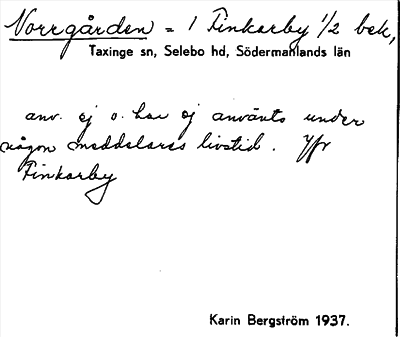 Norrgården = 1 Finkarby 1/2 bek,
Taxinge sn, Selebo hd, Södermanlands län
anv. ej o. har ej använts under
någon meddelares livstid. Jfr
Finkarby
Karin Bergström 1937.